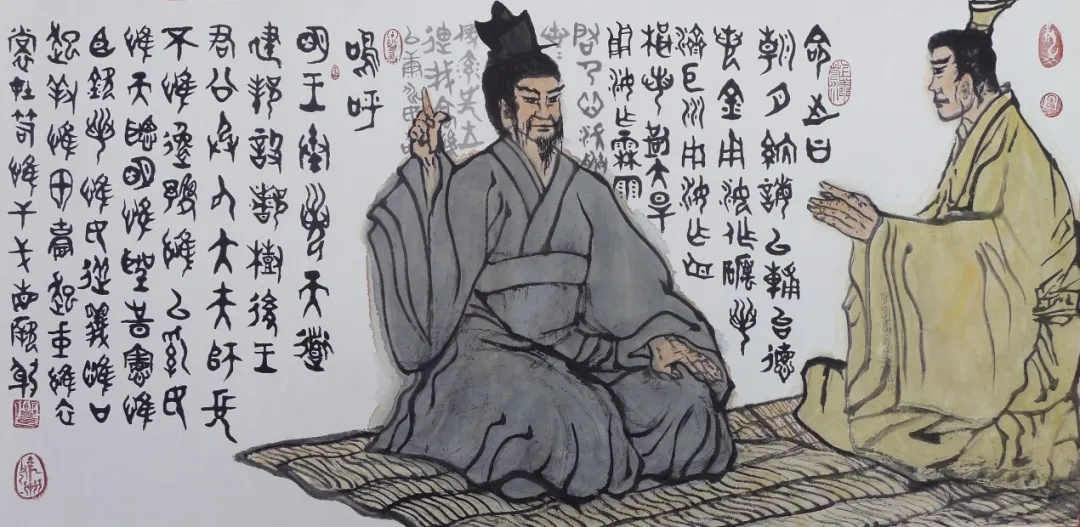 命之曰
朝夕納誨以輔台德
若金用汝作礪若
濟巨川用汝作舟
楫若歲大旱
用汝作霖雨
啟乃心沃朕
嗚呼
明王奉若天道
建邦設都樹後王
君公承以大夫師長
不惟逸豫惟以亂民
惟天聰明惟聖時憲惟
臣欽若惟民從義惟口
起羞惟甲胄起戎惟衣
裳在笥惟干戈省厥躬